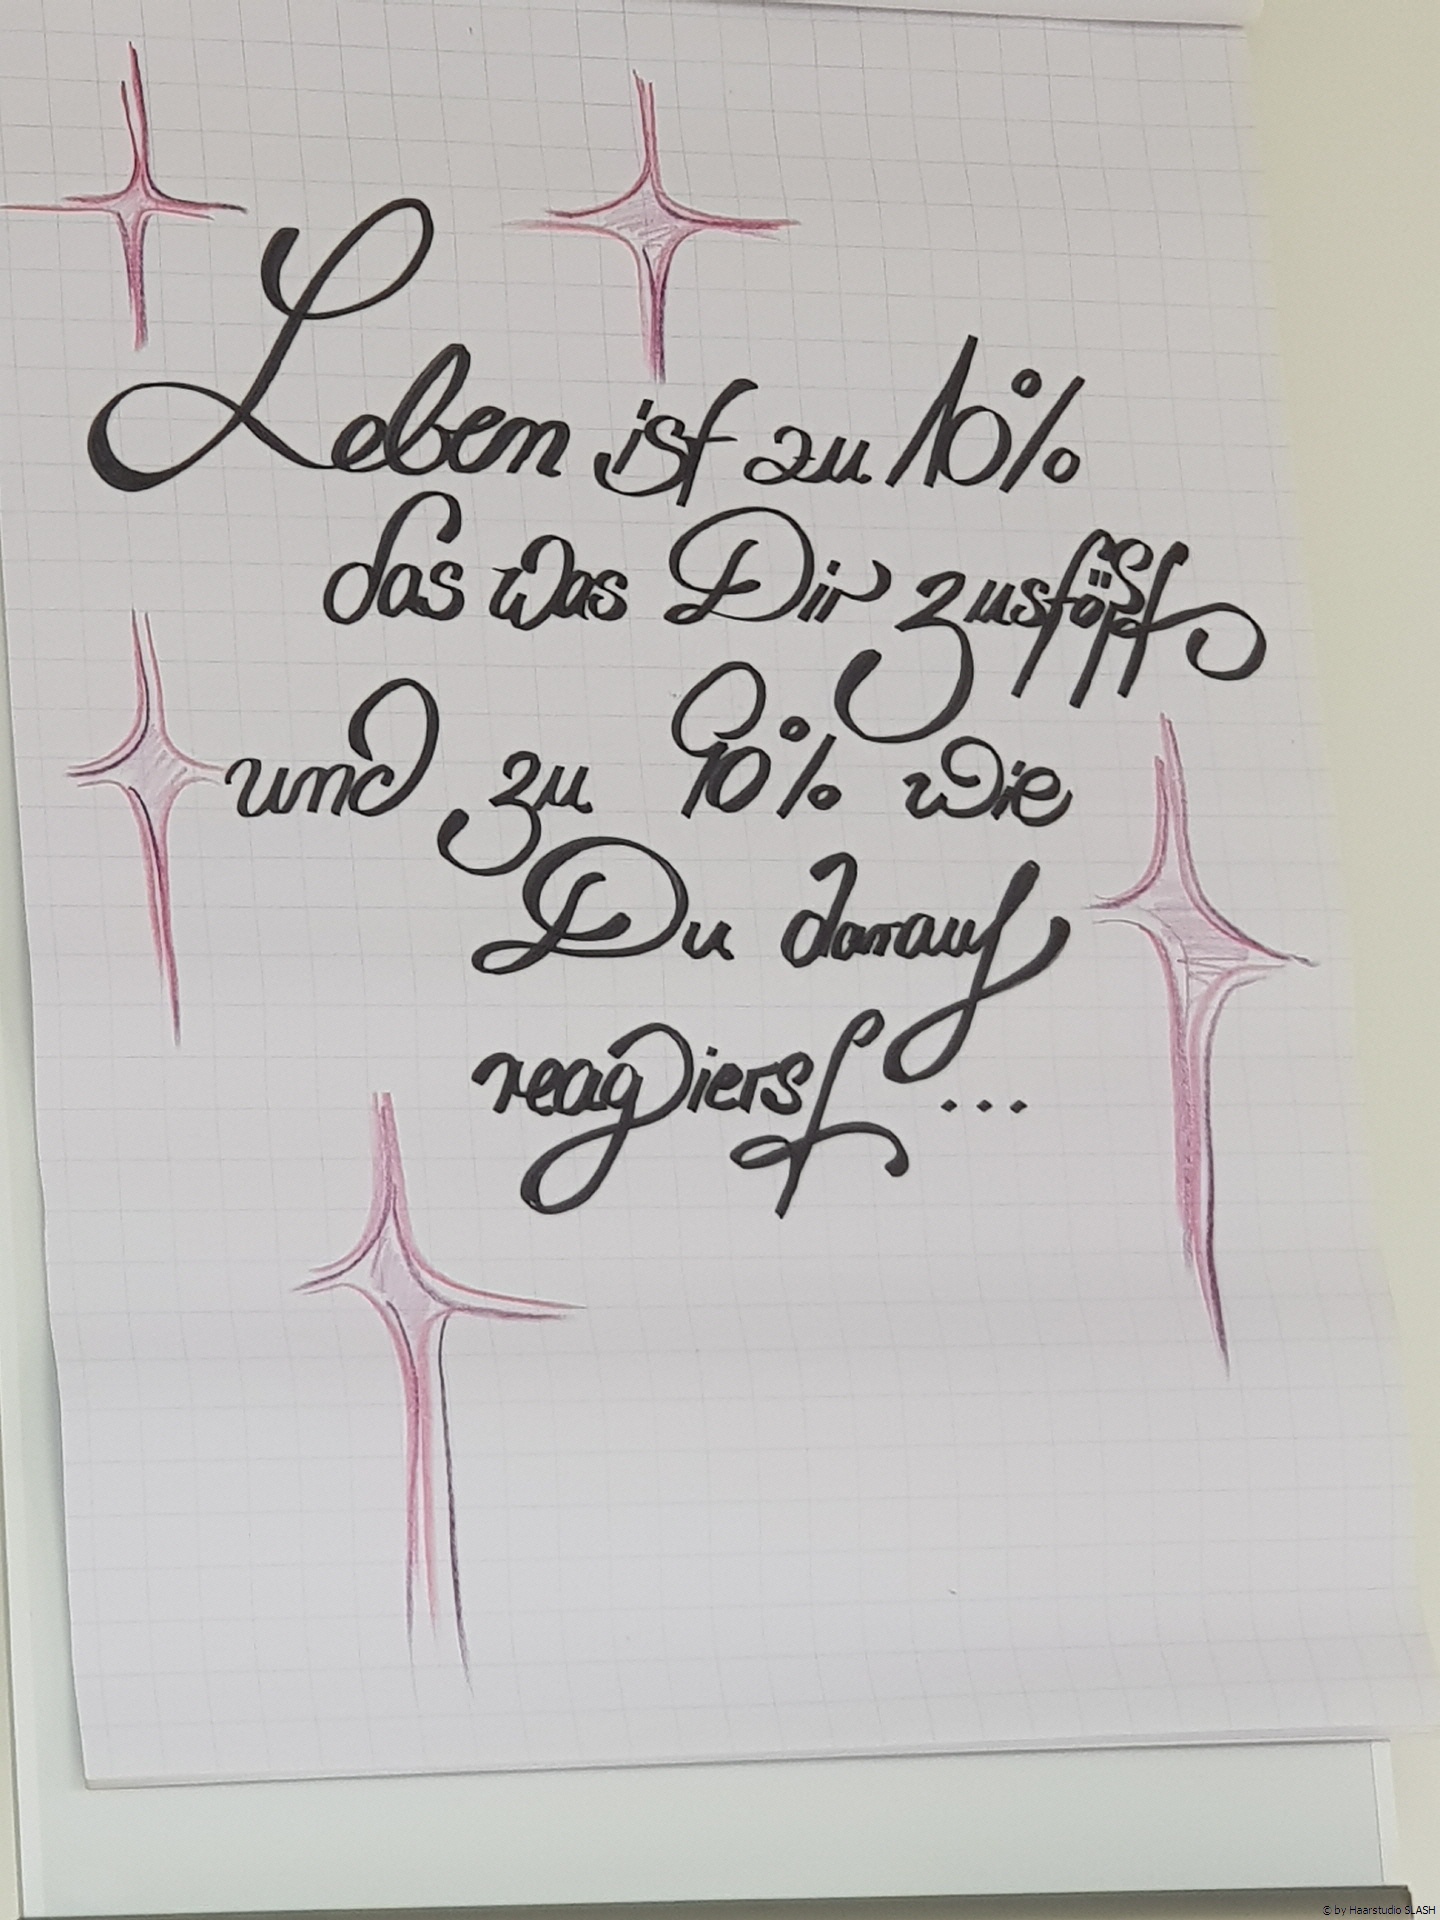 Leben ist zu 10%
das was Dir zustößt
und zu 90% wie
Du darauf
reagierst ...
© by Haarstudio SLASH